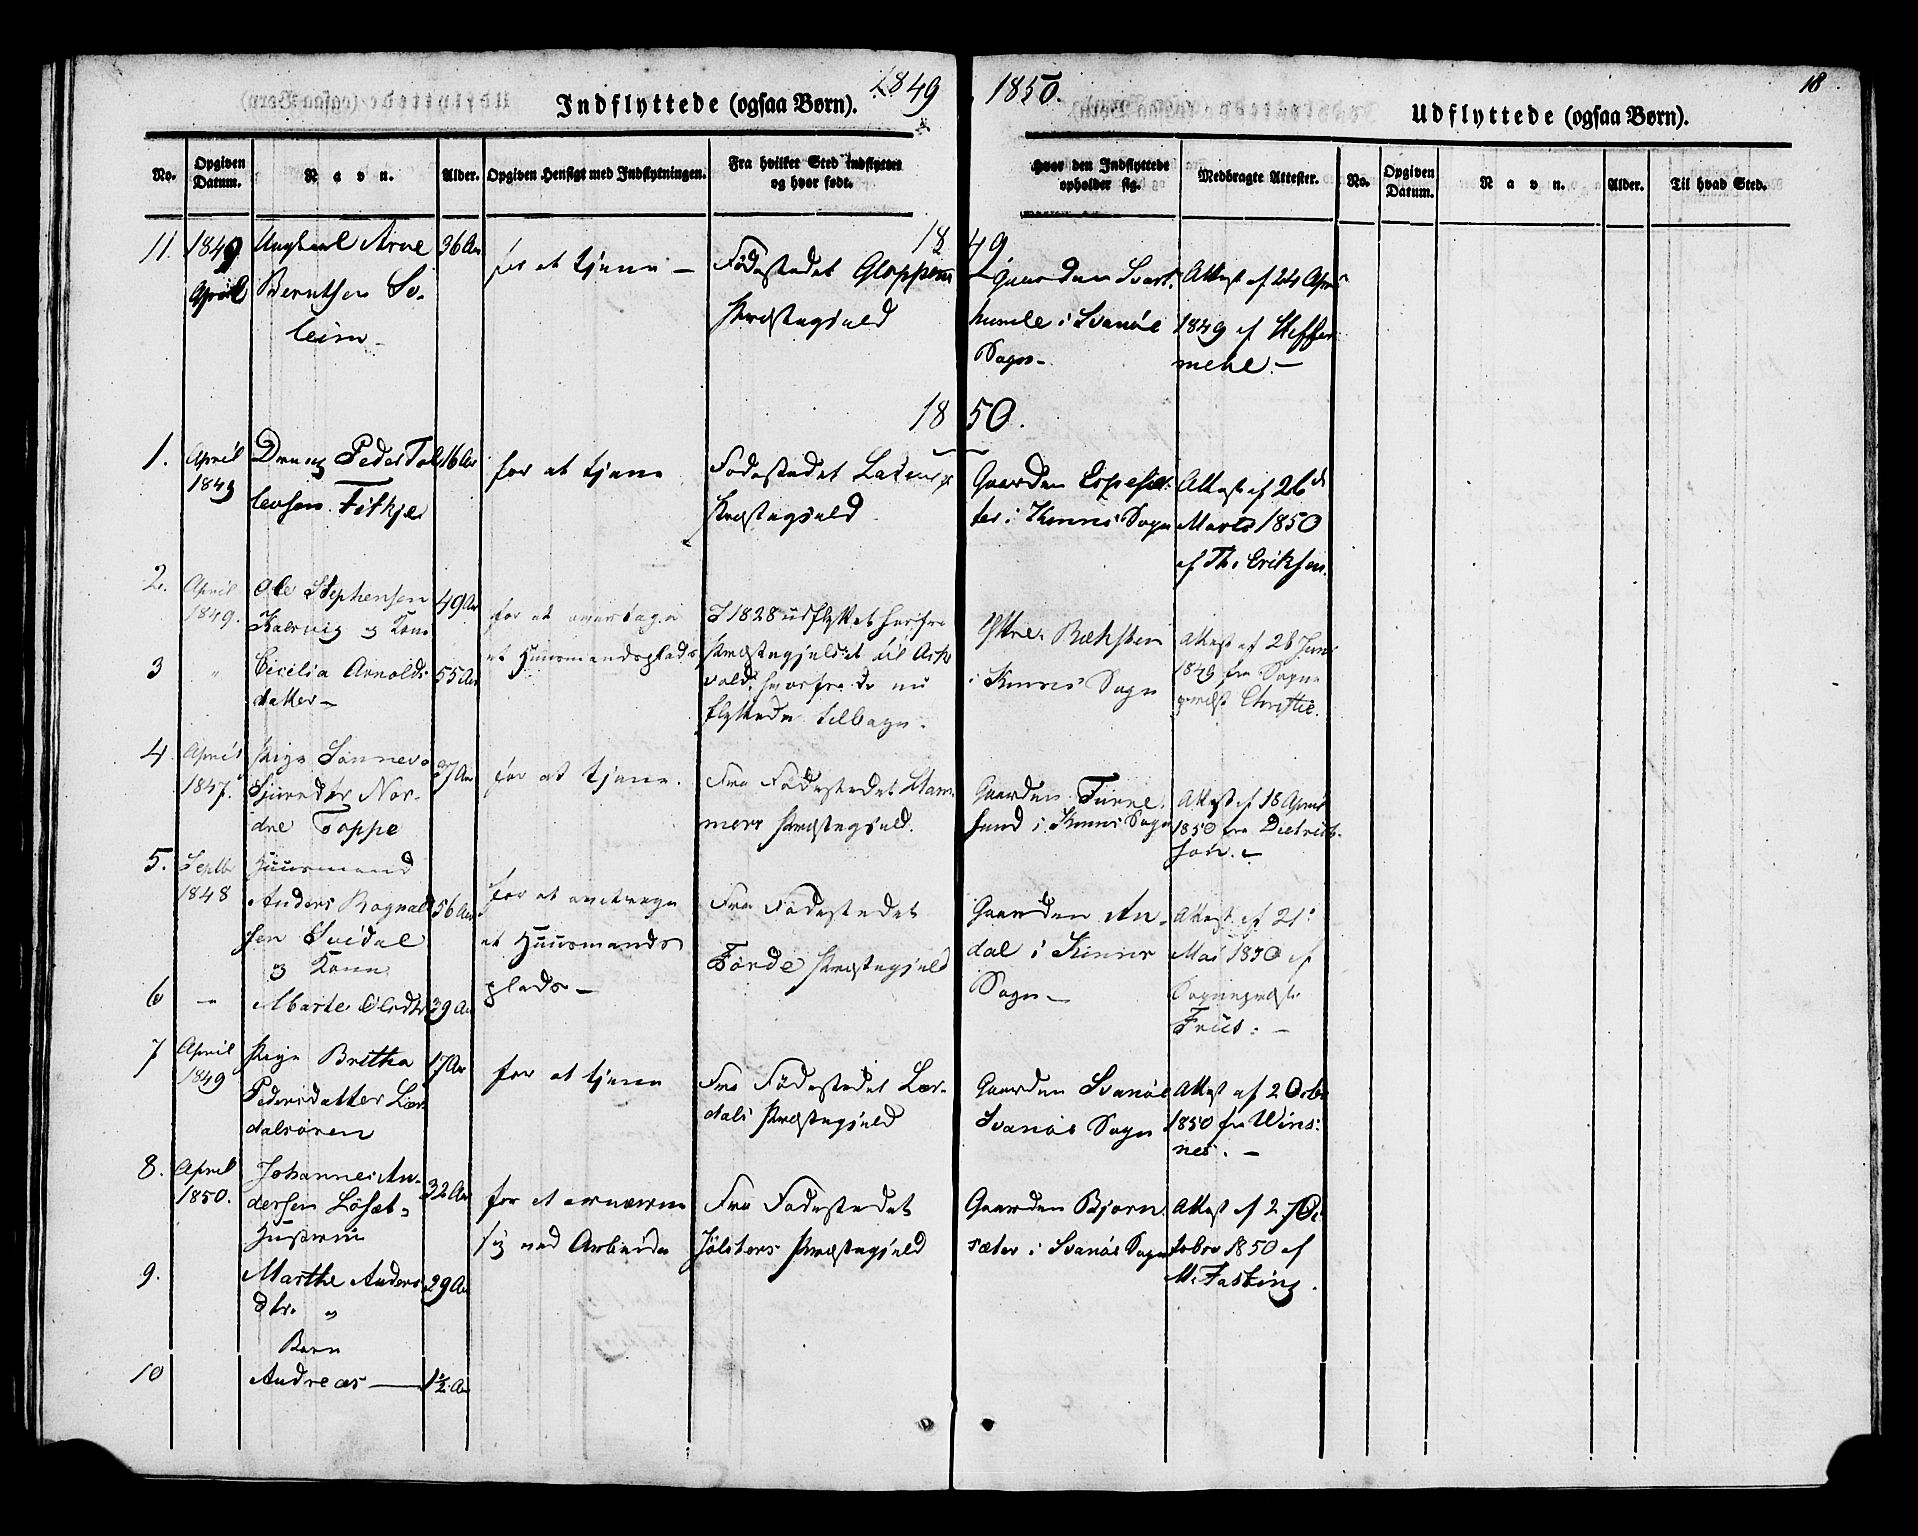 1849
1850.
18
Indflyttede (ogsaa Børn).
Udflyttede (ogsaa Børn).
No.
Opgiven Datum.
Navn.
Alder.
Opgiven Hensigt med Indflytningen.
Fra hvilket Sted indflyttet og hvor født.
Hvor den Indflyttede opholder sig.
Medbragte Attester.
No.
Opgiven Datum.
Navn.
Alder.
Til hvad Sted.
1849
11.
1849
April
Ungkarl Arne
Berntsen So-
leim
36 Aar
for at tjene –
Fødestedet Gloppens
Præstegjeld
Gaarden Svart-
humle i Svanøe
Sogn –
Attest af 24 April
1849 af Steffen
mehl. –
1850.
1.
April
1849
Dreng Peder Tol
levsen Fitkje
16 Aar
for at tjene
Fødestedet
Præstegjeld
Gaarden Espesæ-
ter i Kinns Sogn
Attest af 26de
Marts 1850
af Th. Eriksen.
2.
April
1849.
Ole Stephensen
Kalvvig og Kone
49 Aar
for at overtage
et Huusmandsplads
I 1828 udflyttet herfra
Præstegjeldet til Ask
vold, hvorfra de nu
flyttede tilbage.
Yttre Bæksten
i Kinns Sogn
Attest af 26 Juni
1849 fra Sogne
præst Christie.
3
"
Cicilia Arnolds
datter –
55 Aar
4.
April
1847.
Pige Sønnev
Sjursdtr Nor-
dre Toppe
37 Aar
for at tjene.
Fra Fødestedet Ham-
mers Præstegjeld.
Gaarden Furre
sund i Kinns Sogn
Attest af 18 April
1850 fra Dietrich-
son. –
5.
Septbr
1848
Huusmand
Anders Rognald
sen Svidal
og Kone
56 Aar
for at overtage
et Huusmands
plads –
Fra Fødestedet
Førde Præstegjeld
Gaarden An-
dal i Kinns
Sogn –
Attest af 21
Mai 1850 af
Sognepræst
Friis. –
6
–
Marte Olsdtr
39 Aar
7
April
1849
Pige Britha
Pedersdatter Lær
dalsøren
17 Aar
for at tjene
Fra Fødestedet Lær-
dals Præstegjeld
Gaarden Svanøe
Svanøe Sogn
Attest af 2 Octbr
1850 fra Wins-
nes. –
8.
April
1850.
Johannes An-
dersen Løsæt
Hustru
32 Aar
for at ernære
sig ved Arbeide
Fra Fødestedet
Jølsters Præstegjeld
Gaarden Bjørn
sæter i Svanøe Sogn
Attest af 2 Oc-
tober 1850 af
M. Fasting.
9.
Marthe Anders
dtr. "
29 Aar
Barn
10
Andreas –
1½ Aar